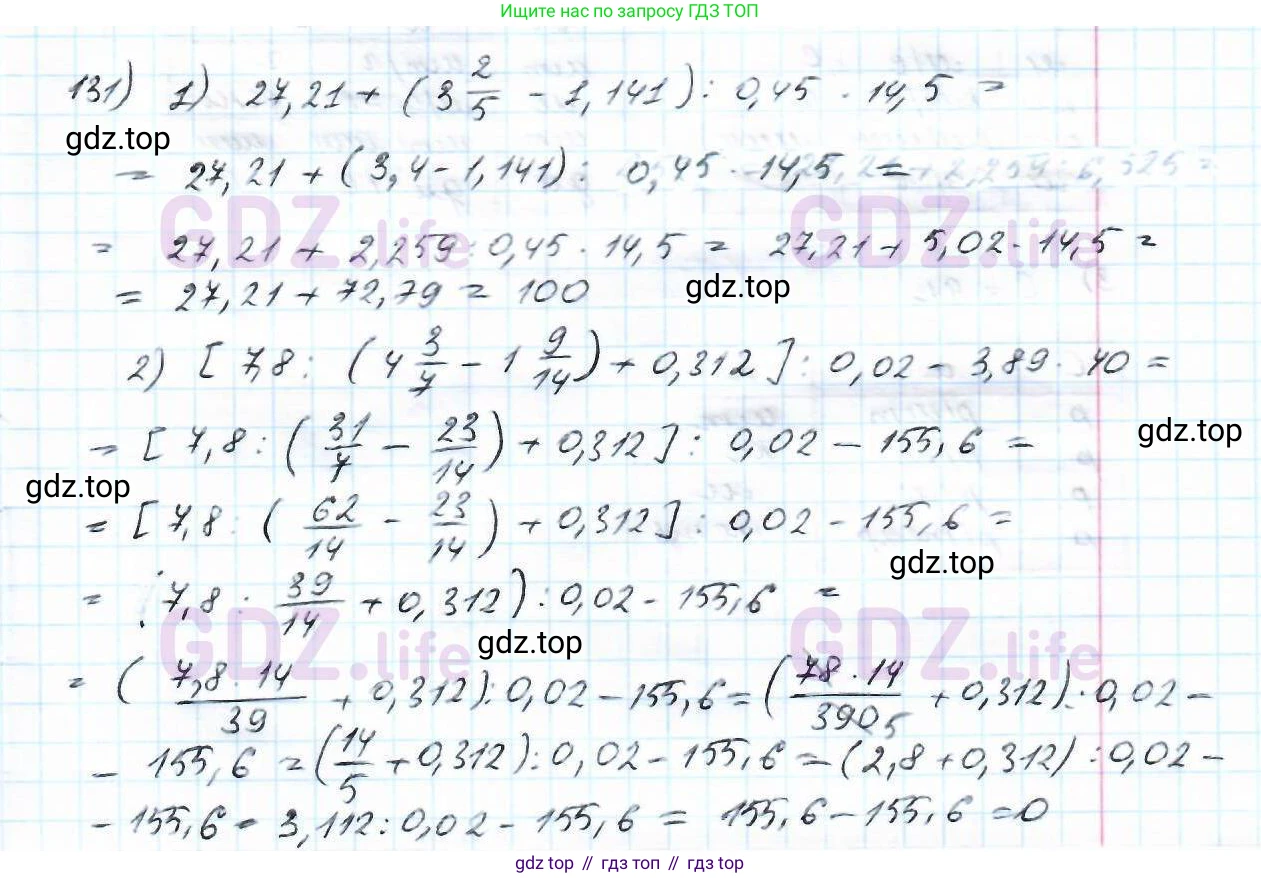 Ищите нас по запросу ГДЗ ТОП
131) 1) 27,21 + (3 2/5 - 1,141) : 0,45 · 14,5 =
gdz.top
= 27,21 + (3,4 - 1,141) : 0,45 · 14,5 =
GDZ.life GDZ.life
= 27,21 + 2,259 : 0,45 · 14,5 = 27,21 + 5,02 · 14,5 =
= 27,21 + 72,79 = 100
gdz.top
2) [ 7,8 : (4 3/7 - 1 9/14) + 0,312 ] : 0,02 - 3,89 · 40 =
= [ 7,8 : (31/7 - 23/14) + 0,312 ] : 0,02 - 155,6 =
gdz.top
gdz.top
= [ 7,8 : (62/14 - 23/14) + 0,312 ] : 0,02 - 155,6 =
gdz.top
= (7,8 : 39/14 + 0,312) : 0,02 - 155,6 =
GDZ.life gdz.top GDZ.life
= (7,8 · 14/39 + 0,312) : 0,02 - 155,6 = (78 · 14/390 5 + 0,312) : 0,02 -
- 155,6 = (14/5 + 0,312) : 0,02 - 155,6 = (2,8 + 0,312) : 0,02 -
- 155,6 = 3,112 : 0,02 - 155,6 = 155,6 - 155,6 = 0
gdz top // гдз топ // gdz top